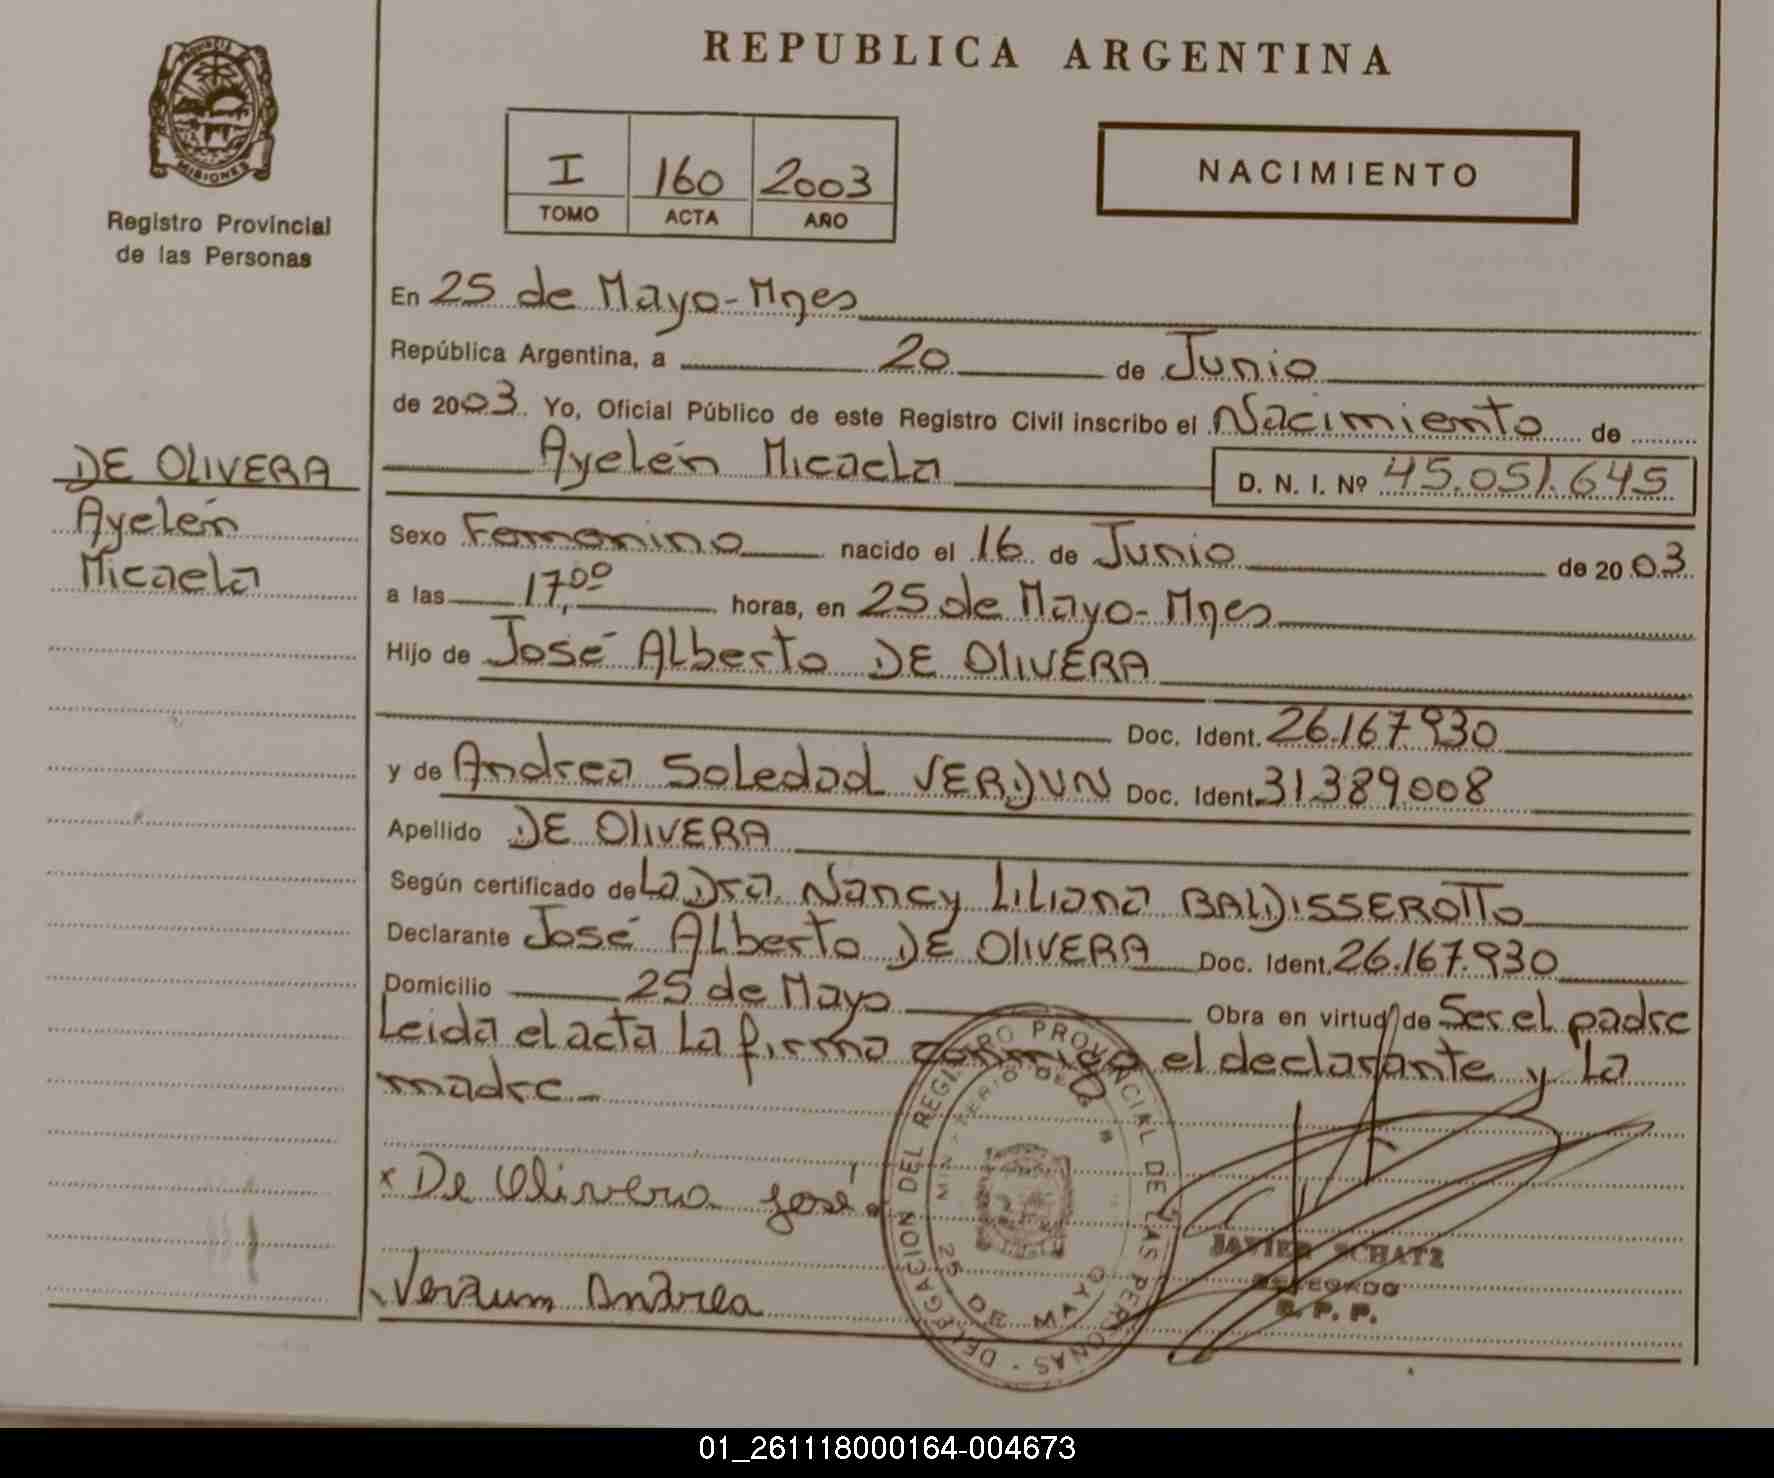 REPUBLICA ARGENTINA
MISIONES
Registro Provincial
de las Personas
I 160 2003
TOMO ACTA AÑO
NACIMIENTO
En 25 de Mayo-Mnes
República Argentina, a 20 de Junio
de 2003. Yo, Oficial Público de este Registro Civil inscribo el Nacimiento de
Ayelén Micaela D. N. I. Nº 45.051.645
DE OLIVERA
Ayelén
Micaela
Sexo Femenino nacido el 16 de Junio de 2003
a las 17,00 horas, en 25 de Mayo-Mnes
Hijo de José Alberto DE OLIVERA
Doc. Ident. 26.167.930
y de Andrea Soledad VERDUN Doc. Ident. 31.389.008
Apellido DE OLIVERA
Según certificado de La Dra. Nancy Liliana BALDISSEROTTO
Declarante José Alberto DE OLIVERA Doc. Ident. 26.167.930
Domicilio 25 de Mayo Obra en virtud de Ser el padre
Leida el acta La firma conmigo el declarante y La
madre
x De Olivera José
Verdum Andrea
DELEGACION DEL REGISTRO PROVINCIAL DE LAS PERSONAS
25 DE MAYO
JAVIER SCHATZ
DELEGADO
R. P. P.
01_261118000164-004673